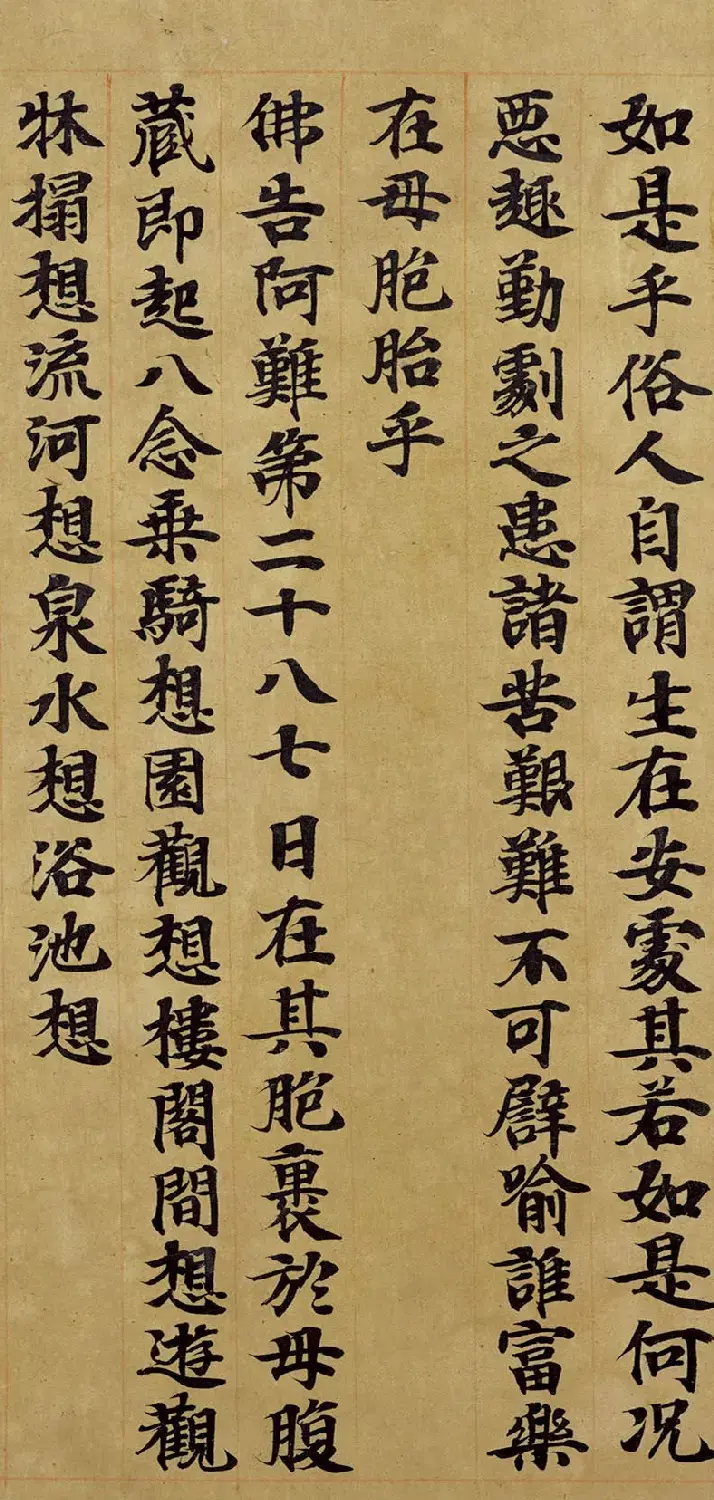 如是乎俗人自謂生在安處其若如是何况
惡趣勤劇之患諸苦艱難不可譬喻誰富樂
在母胞胎乎
佛告阿難第二十八七日在其胞裏於母腹
藏即起八念乗騎想園觀想樓閣間想遊觀
牀搨想流河想泉水想浴池想